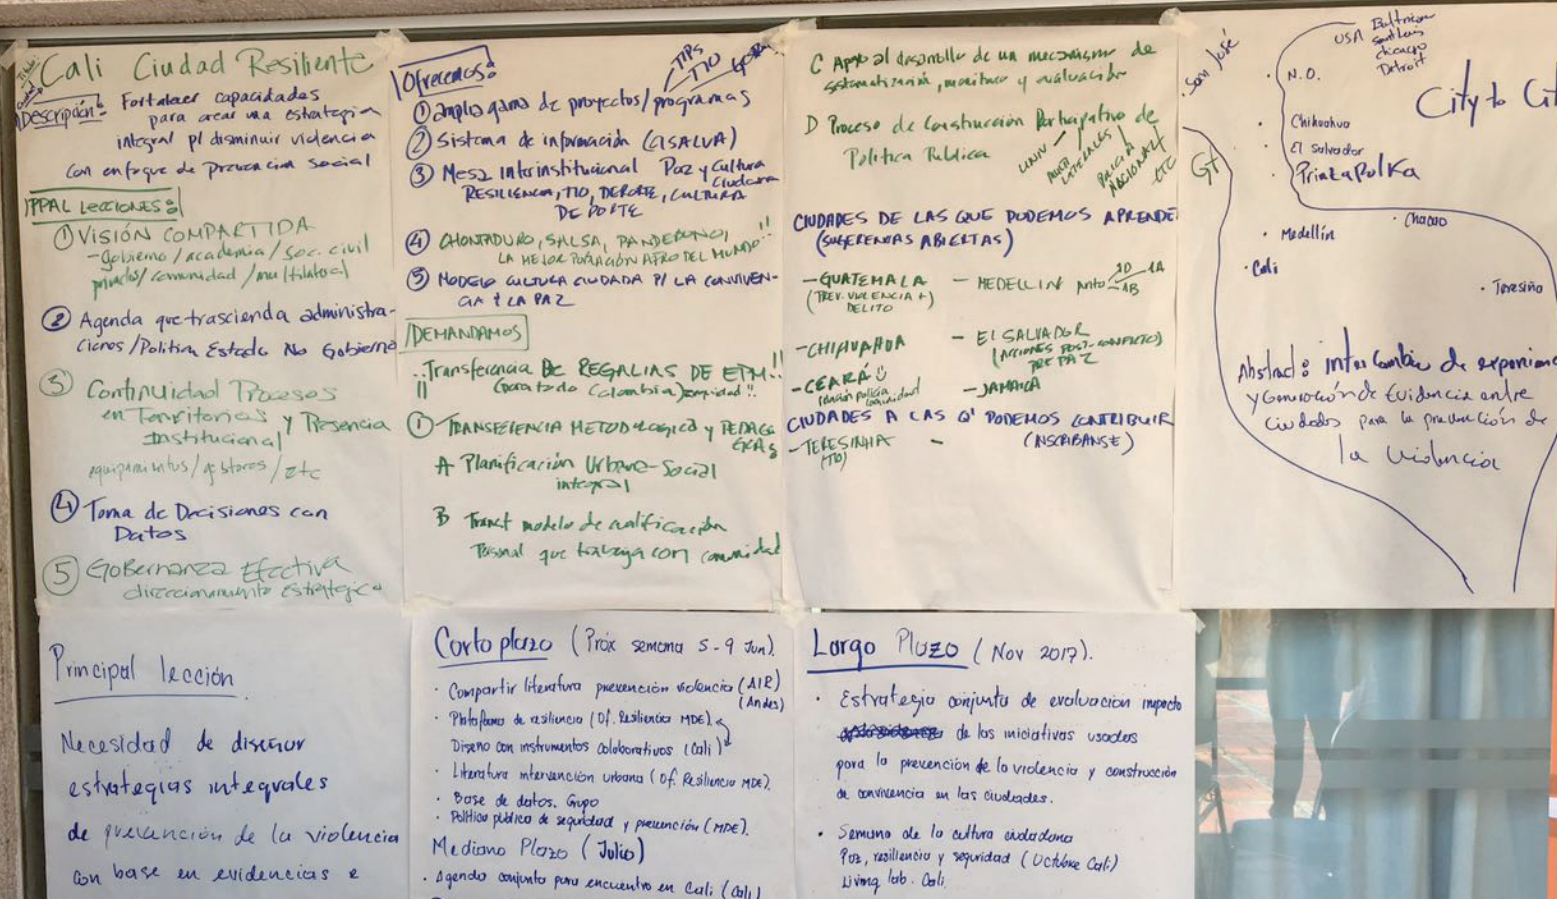 Cali Ciudad Resiliente
Descripción: Fortalecer capacidades
para crear una estrategia
integral p/ disminuir violencia
con enfoque de prevención social
PPAL LECCIONES:
① VISIÓN COMPARTIDA
- gobierno/academia/soc. civil
privados/comunidad/multilateral
② Agenda que trascienda administra-
ciones/Política Estado No Gobierno
③ Continuidad Procesos
en Territorios y Presencia
Institucional
equipamientos/gestores/etc
④ Toma de Decisiones con
Datos
⑤ GOBERNANZA EFECTIVA
direccionamiento estratégico
Ofrecemos:
TIPS
TIO
① Amplia gama de proyectos/programas
② Sistema de información (CISALVA)
③ Mesa Interinstitucional Paz y Cultura
Ciudadana
RESILIENCIA, TIO, DEPORTE, CULTURA
DEPORTE
④ CHONTADURO, SALSA, PANDEBONO, !!
LA MEJOR POBLACIÓN AFRO DEL MUNDO
⑤ MODELO CULTURA CIUDADA P/ LA CONVIVEN-
CIA Y LA PAZ
DEMANDAMOS
Transferencia DE REGALIAS DE EPM!!
(para todo Colombia) equidad!!
① TRANSFERENCIA METODOLOGICA y PEDAGO
GICAS
A Planificación Urbano-Social
integral
B Transf modelo de cualificación
Personal que trabaja con comunidad
C Apoyo al desarrollo de un mecanismo de
sistematización, monitoreo y evaluación
D Proceso de Construcción Participativo de
Política Publica
UNIV
MULTI
LATERALES
POLICIA
NACIONAL
ETC
CIUDADES DE LAS QUE PODEMOS APRENDE
(SUGERENCIAS ABIERTAS)
- GUATEMALA
(PREV. VIOLENCIA +)
DELITO
- MEDELLIN punto 1D 1A
1B
- CHIHUAHUA
- EL SALVADOR
(ACCIONES POST-CONFLICTO)
PAZ
- CEARÁ
relación policía
comunidad
- JAMAICA
CIUDADES A LAS Q' PODEMOS CONTRIBUIR
(INSCRIBANSE)
- TERESINHA
(TIO)
-
San José
USA
Baltimore
Chicago
Detroit
City to Cit
· N.O.
· Chihuahua
· El Salvador
· PrinzaPolKa
GT
· Chacao
· Medellín
· Cali
· Teresina
Abstract: intercambio de experienc
y Generación de Evidencia entre
ciudades para la prevención de
la violencia
Principal lección
Necesidad de diseñar
estrategias integrales
de prevención de la violencia
con base en evidencias e
Corto plazo (Prox semana 5-9 Jun).
· Compartir literatura prevención violencia (AIR)
(Andes)
· Plataforma de resiliencia (Of. Resiliencia MDE).
Diseño con instrumentos colaborativos (Cali)
· Literatura intervención urbana (Of. Resiliencia MDE).
· Base de datos. Grupo
· Política pública de seguridad y prevención (MDE).
Mediano Plazo (Julio)
· Agenda conjunta para encuentro en Cali (Cali)
Largo Plazo (Nov 2017).
· Estrategia conjunta de evaluación impacto
de las iniciativas usadas
para la prevención de la violencia y construcción
de convivencia en las ciudades.
· Semana de la cultura ciudadana
Paz, resiliencia y seguridad (Octubre Cali)
Living lab. Cali.